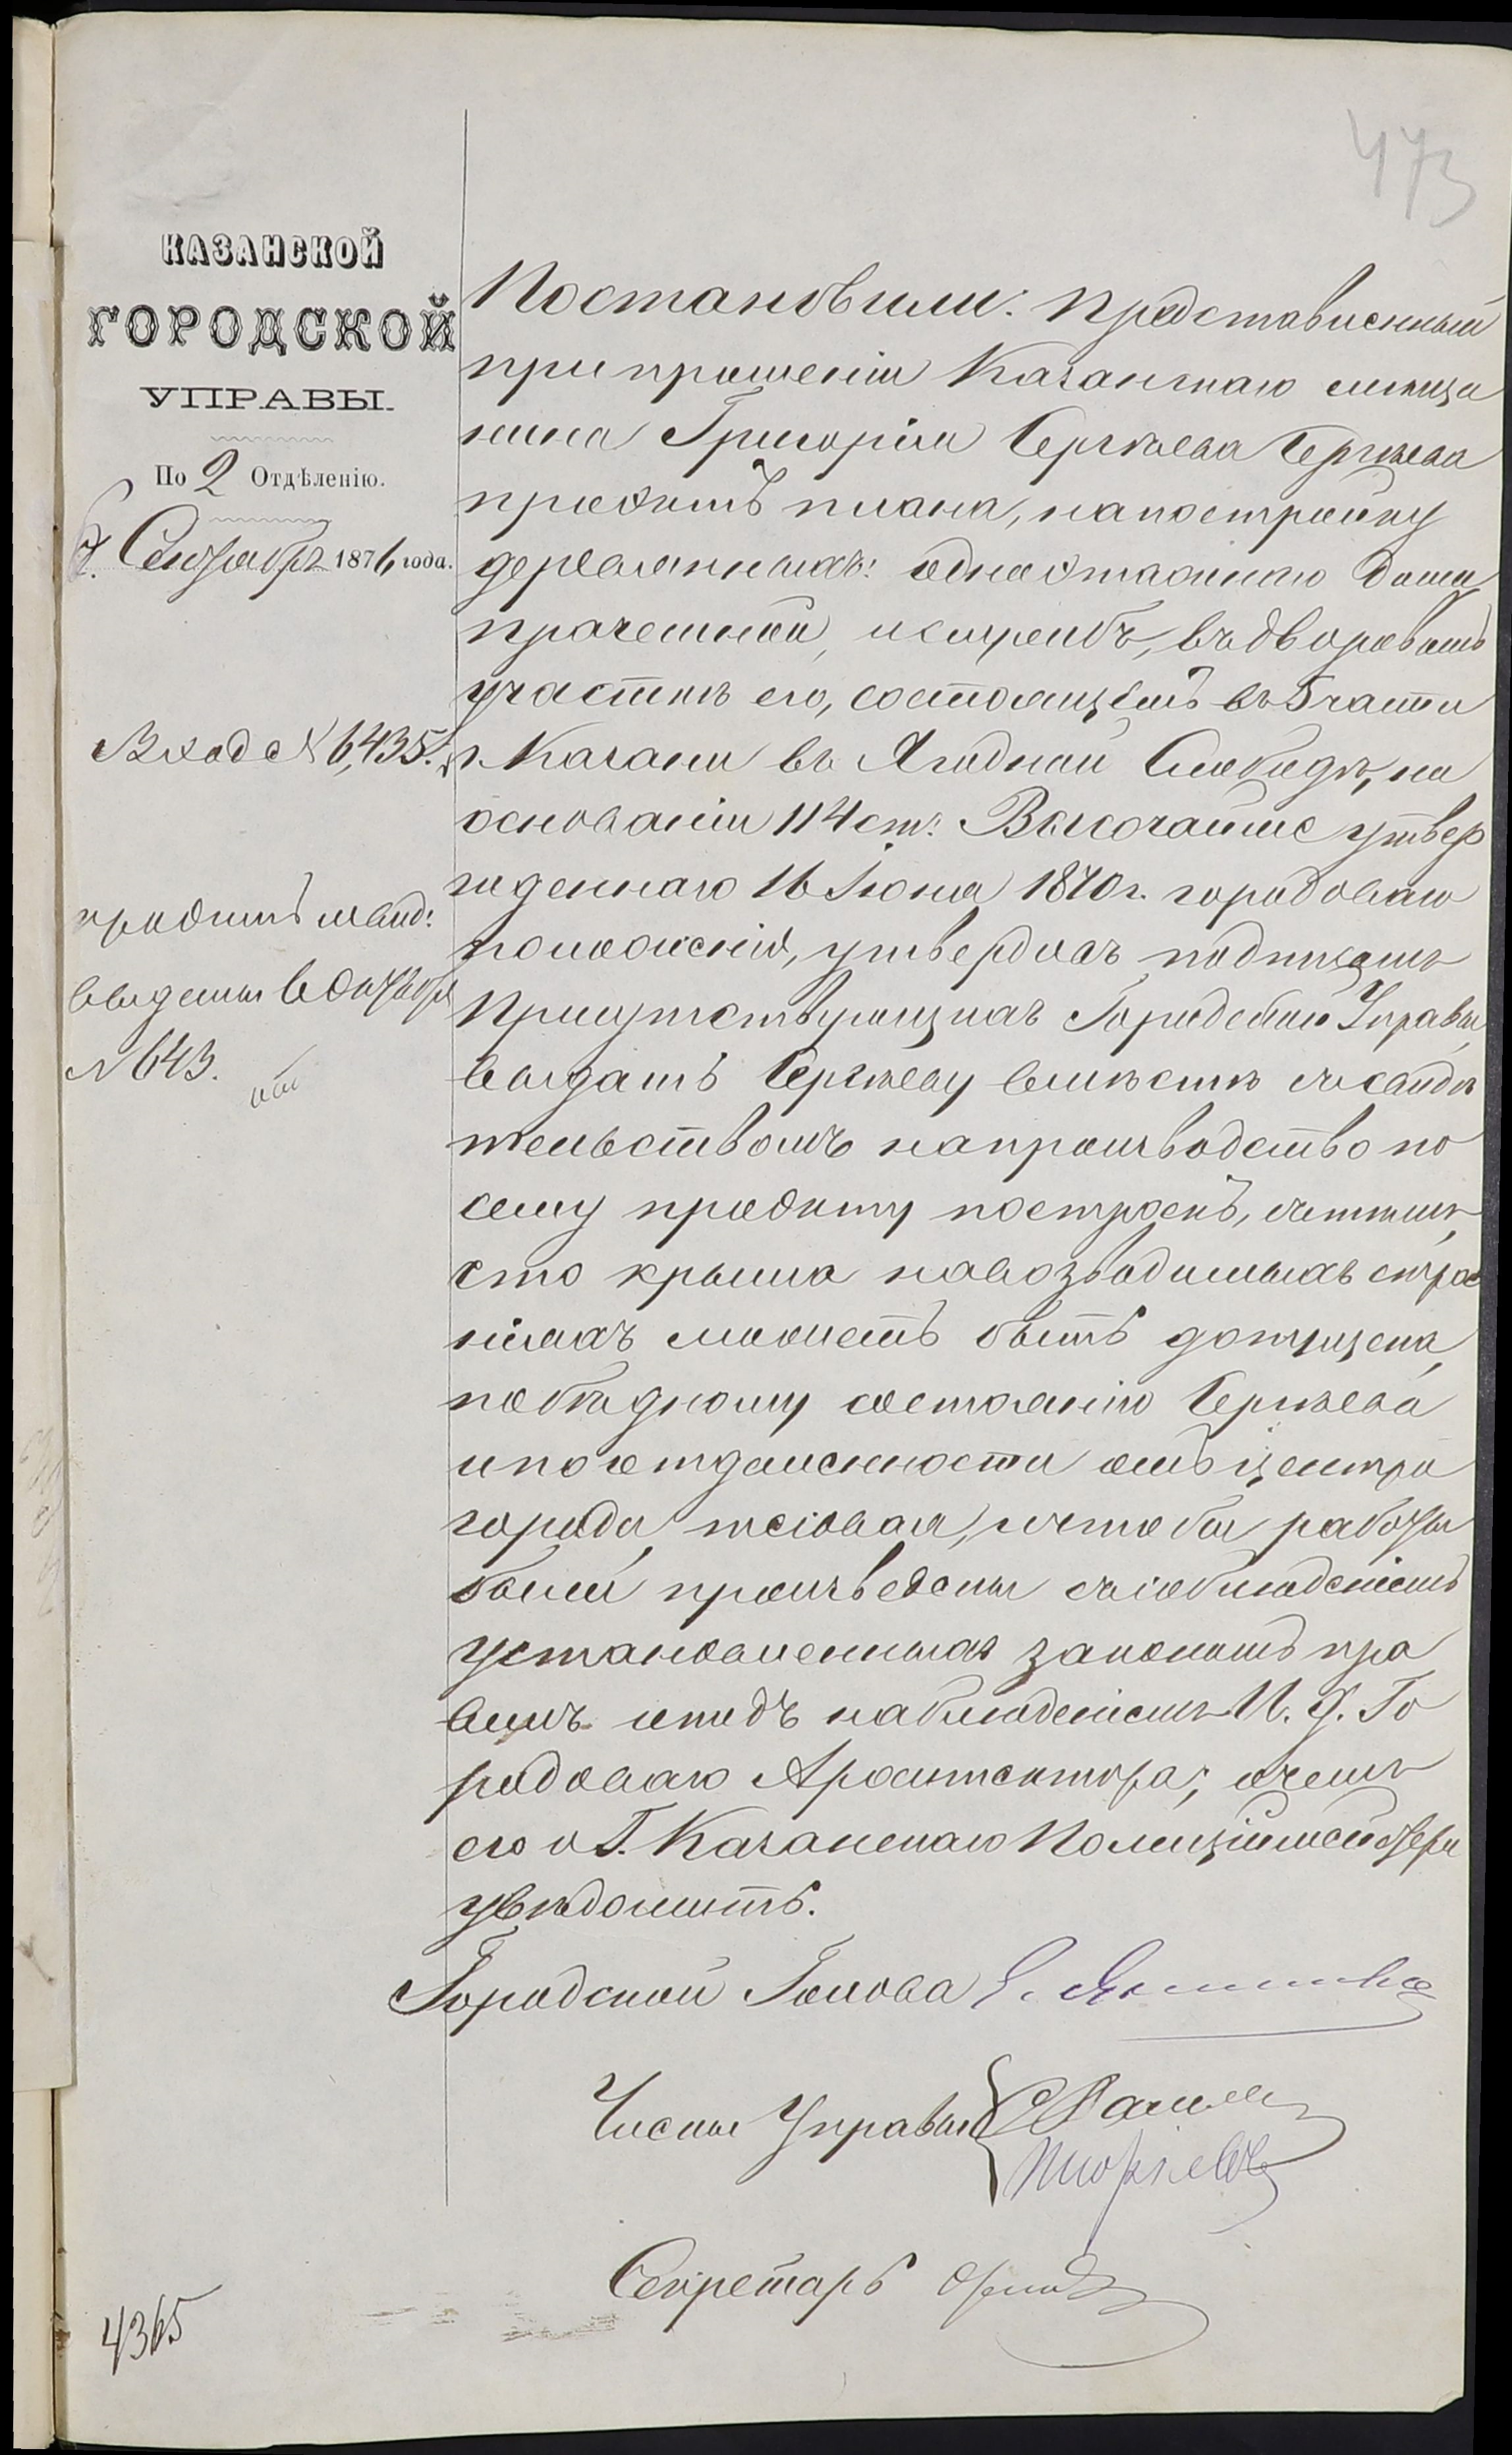 473
КАЗАНСКОЙ
ГОРОДСКОЙ
УПРАВЫ.
По 2 Отдѣленію.
Сентября 1876 года.
Вход № 6,435.
проэктъ и свид:
выданы 6 Октября
№ 643.
Постановили: Представленный
при прошеніи Казанскаго мѣща
нина Григорія Сергѣева Сергѣева
проэктъ плана, на постройку
деревянныхъ: одноэтажнаго дома,
прачешной, и службъ, въ дворовомъ
участкѣ его, состоящемъ въ 5 части
г. Казани въ Ягодной Слободѣ, на
основаніи 114 ст: Высочайше утвер
жденнаго 16 Іюня 1870 г. городоваго
положенія, утвердивъ подписомъ
Присутствующихъ Городской Управы,
выдать Сергѣеву вмѣстѣ съ свидѣ
тельствомъ на производство по
сему проэкту построекъ, съ тѣмъ,
что крыша на возводимыхъ строе
ніяхъ можетъ быть допущена,
по бѣдному состоянію Сергѣева
и по отдаленности отъ центра
города, тесовая, и чтобы работы
были произведены съ соблюденіемъ
установленныхъ закономъ пра
вилъ и подъ наблюденіемъ И. д. Го
родоваго Архитектора; о чемъ
его и Г. Казанскаго Полиціймейстера
увѣдомить.
Городской Голова
Члены Управы
Секретарь
4365